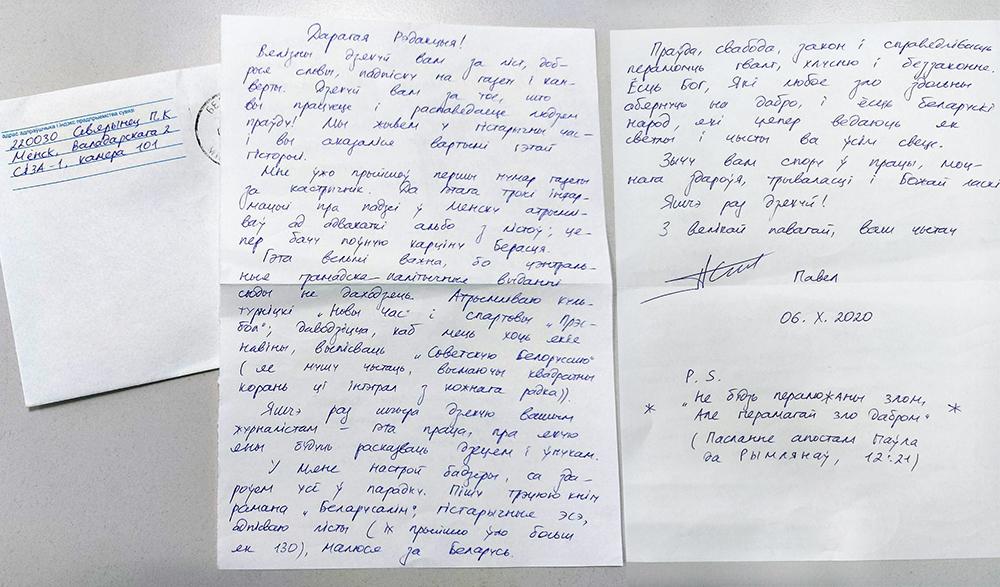 адрас адпраўшчыка і індэкс прадпрыемства сувязі
220030 Севярынец П.К
Менск, Валадарскага 2
СІЗА-1, камера 101
БЕ
Дарагая Рэдакцыя!
Вялізны дзякуй вам за ліст, доб-
рыя словы, падпіску на газету і кан-
верты. Дзякуй вам за тое, што
вы працуеце і распавядаеце людзям
праўду! Мы жывем у гістарычны час –
і вы аказаліся вартымі гэтай
гісторыі.
Мне ўжо прыйшоў першы нумар газеты
за кастрычнік. Да гэтага трохі інфар-
мацыі пра падзеі ў Менску атрымлі-
ваў ад адвакаткі альбо з лістоў; це-
пер бачу поўную карціну Берасця.
Гэта вельмі важна, бо цэнтраль-
ныя грамадска-палітычныя выданні
сюды не даходзяць. Атрымліваю куль-
туніцкі „Новы Час" і спартовы „Прэс-
бол"; даводзіцца, каб мець хоць якія
навіны, выпісваць „Советскую Белоруссию"
(яе мушу чытаць, вымаючы квадратны
корань ці інтэграл з кожнага радка)).
Яшчэ раз шчыра дзякую вашым
журналістам – гэта праца, пра якую
яны будуць расказваць дзецям і ўнукам.
У мяне настрой бадзёры, са зда-
роўем усё ў парадку. Пішу трэцюю кнігу
рамана „Беларусалім", гістарычныя эсэ,
адпісваю лісты (іх прыйшло ўжо больш
як 130), малюся за Беларусь.
Праўда, свабода, закон і справядлівасць
перамогуць гвалт, хлусню і беззаконне.
Ёсць Бог, Які любое зло здольны
абярнуць на дабро, і ёсць беларускі
народ, які цяпер ведаюць як
светлы і чысты ва ўсім свеце.
Зычу вам спору ў працы, моц-
нага здароўя, трываласці і Божай ласкі
Яшчэ раз дзякуй!
З вялікай павагай, ваш чытач
Павел
06. X. 2020
P. S.
* „Не будзь пераможаны злом, *
Але перамагай зло дабром"
(Пасланне апостала Паўла
да Рымлянаў, 12:21)